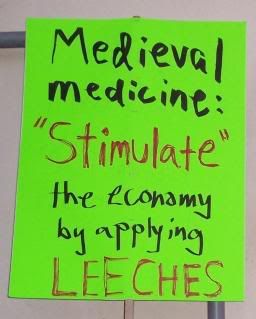 Medieval
medicine:
"Stimulate"
the economy
by applying
LEECHES